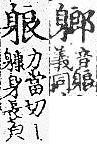 音躴
義同
躴
力當切丨
躿身長皃